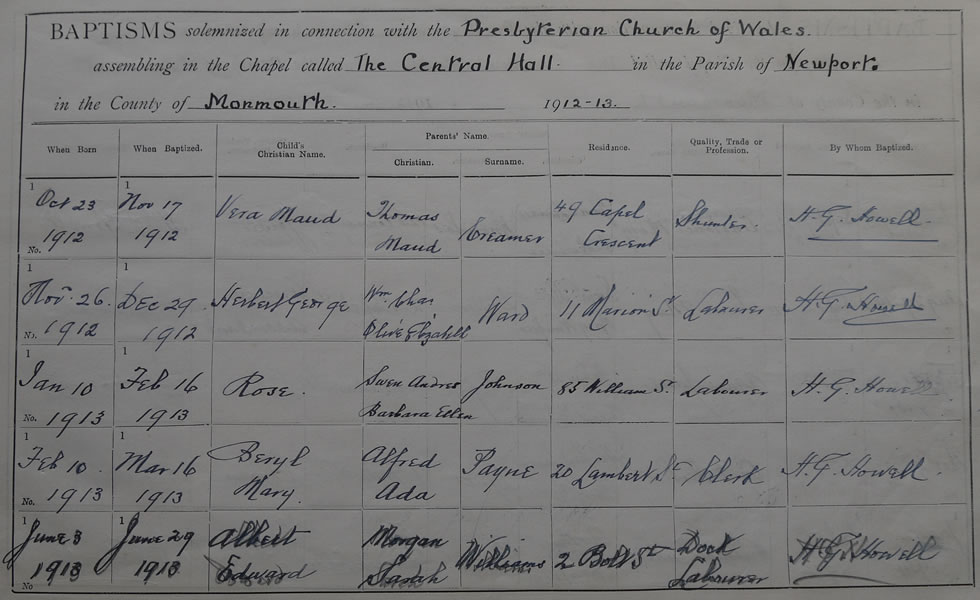 BAPTISMS solemnized in connection with the Presbyterian Church of Wales.
assembling in the Chapel called The Central Hall. in the Parish of Newport.
in the County of Monmouth. 1912-13.
When Born When Baptized. Child's Christian Name. Parents' Name. Christian. Surname. Residence. Quality, Trade or Profession. By Whom Baptized.
1 1
Oct 23 Nov 17 Vera Maud Thomas Creamer 49 Capel Shunter. H. G. Howell.
No. 1912 1912 Maud Crescent
1 1
Nov. 26. Dec 29 Herbert George Wm Chas Ward 11 Marion St Labourer H. G. Howell
No. 1912 1912 Olive Elizabeth
1 1
Jan 10 Feb 16 Rose. Swen Andres Johnson 85 William St Labourer H. G. Howell
No. 1913 1913 Barbara Ellen
1 1
Feb 10. Mar 16 Beryl Alfred Payne 20 Lambert St Clerk H. G. Howell.
No. 1913 1913 Mary. Ada
1 1
June 3 June 29 Albert Morgan Williams 2 Bolt St Dock H. G. Howell
No 1913 1913 Edward Sarah Labourer